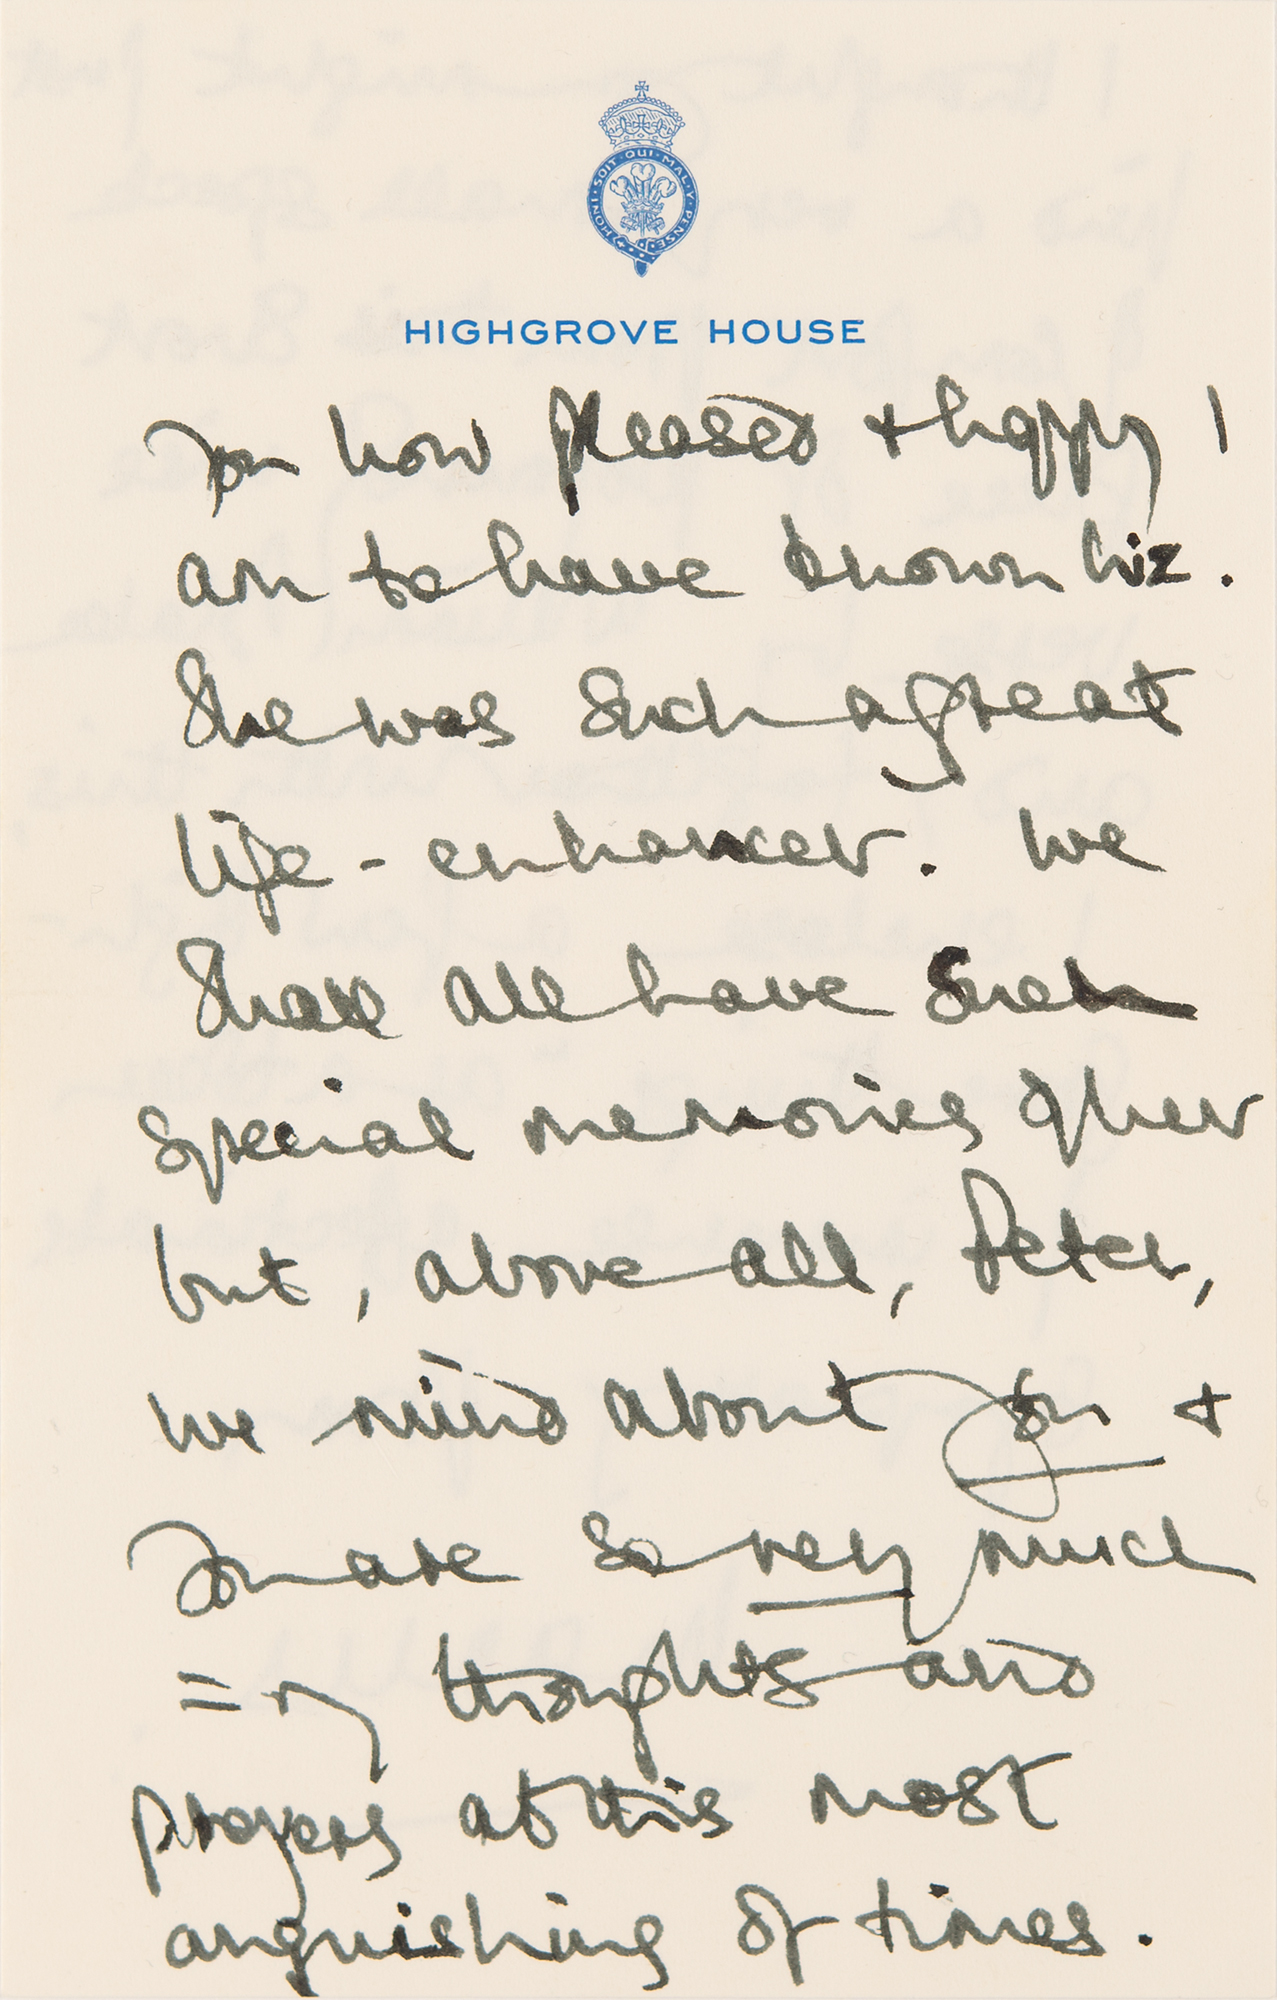 HONI · SOIT · QUI · MAL · Y · PENSE
HIGHGROVE HOUSE
you how pleased + happy I
am to have known Liz.
She was such a great
life-enhancer. We
shall all have such
special memories of her
but, above all, Peter,
we mind about you +
you are so very much
= my thoughts and
prayers at this most
anguishing of times.